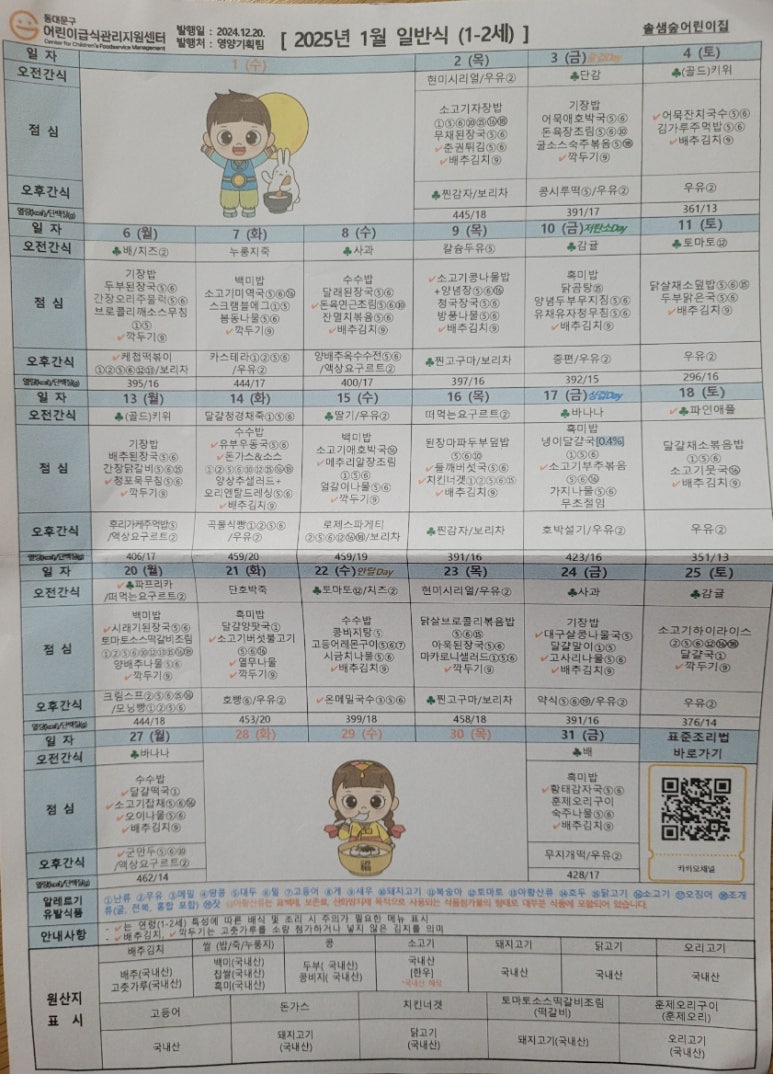 동대문구
어린이급식관리지원센터
Center for Children's Foodservice Management
발행일 : 2024.12.20.
발행처 : 영양기획팀
[ 2025년 1월 일반식 (1-2세) ]
솔샘숲어린이집
일 자 1 (수) 2 (목) 3 (금) 4 (토)
오전간식 현미시리얼/우유② ♣단감 ♣(골드)키위
점 심
소고기자장밥
무채된장국⑤⑥
✓춘권튀김⑤⑥
✓배추김치⑨
기장밥
어묵애호박국⑤⑥
돈육장조림⑤⑥⑩
굴소스숙주볶음⑤⑱
✓깍두기⑨
✓어묵잔치국수⑤⑥
김가루주먹밥⑤⑥
✓배추김치⑨
오후간식 ♣찐감자/보리차 콩시루떡⑤/우유② 우유②
열량(kcal)/단백질(g) 445/18 391/17 361/13
일 자 6 (월) 7 (화) 8 (수) 9 (목) 10 (금)저탄소Day 11 (토)
오전간식 ♣배/치즈② 누룽지죽 ♣사과 칼슘두유⑤ ♣감귤 ♣토마토⑫
점 심
기장밥
두부된장국⑤⑥
간장오리주물럭⑤⑥
브로콜리깨소스무침
①⑤
✓깍두기⑨
백미밥
소고기미역국⑤⑥⑯
스크램블에그①⑤
봄동나물⑤⑥
✓깍두기⑨
수수밥
달래된장국⑤⑥
✓돈육연근조림⑤⑥⑩
잔멸치볶음⑤⑥
✓배추김치⑨
✓소고기콩나물밥
+양념장⑤⑥⑯
청국장국⑤⑥
방풍나물⑤⑥
✓배추김치⑨
흑미밥
닭곰탕⑮
양념두부무지짐⑤⑥
유채유자청무침⑤⑥
✓배추김치⑨
닭살채소덮밥⑤⑥⑮
두부맑은국⑤⑥
✓배추김치⑨
오후간식
✓케첩떡볶이
①②⑤⑥⑫⑬/보리차
카스테라①②⑤⑥
/우유②
양배추옥수수전⑤⑥
/액상요구르트②
♣찐고구마/보리차
증편/우유②
우유②
열량(kcal)/단백질(g) 395/16 444/17 400/17 397/16 392/15 296/16
일 자 13 (월) 14 (화) 15 (수) 16 (목) 17 (금)싱겁Day 18 (토)
오전간식 ♣(골드)키위 달걀청경채죽①⑤⑥ ♣딸기/우유② 떠먹는요구르트② ♣바나나 ✓♣파인애플
점 심
기장밥
배추된장국⑤⑥
간장닭갈비⑤⑥⑮
✓청포묵무침⑤⑥
✓깍두기⑨
수수밥
✓유부우동국⑤⑥
✓돈가스&소스
양상추샐러드+
오리엔탈드레싱⑤⑥
✓배추김치⑨
백미밥
소고기애호박국⑯
✓메추리알장조림
①⑤⑥
얼갈이나물⑤⑥
✓깍두기⑨
된장마파두부덮밥
⑤⑥⑩
✓들깨버섯국⑤⑥
✓치킨너겟①②⑤⑥⑮
✓배추김치⑨
흑미밥
냉이달걀국[0.4%]
①⑤⑥
✓소고기부추볶음
⑤⑥⑯
가지나물⑤⑥
무초절임
달걀채소볶음밥
①⑤⑥
소고기뭇국⑯
✓배추김치⑨
오후간식
후리가케주먹밥⑤
/액상요구르트②
곡물식빵①②⑤⑥
/우유②
로제스파게티
②⑤⑥⑫⑯⑱/보리차
♣찐감자/보리차
호박설기/우유②
우유②
열량(kcal)/단백질(g) 406/17 459/20 459/19 391/16 423/16 351/13
일 자 20 (월) 21 (화) 22 (수)잔달Day 23 (목) 24 (금) 25 (토)
오전간식
✓♣파프리카
/떠먹는요구르트②
단호박죽
♣토마토⑫/치즈②
현미시리얼/우유②
♣사과
♣감귤
점 심
백미밥
✓시래기된장국⑤⑥
토마토소스떡갈비조림
양배추나물⑤⑥
✓깍두기⑨
흑미밥
달걀양팟국①
✓소고기버섯불고기
⑤⑥⑯
✓열무나물
✓깍두기⑨
수수밥
콩비지탕⑤
고등어레몬구이⑤⑥⑦
시금치나물⑤⑥
✓배추김치⑨
닭살브로콜리볶음밥
⑤⑥⑮
아욱된장국⑤⑥
마카로니샐러드①⑤⑥
✓깍두기⑨
기장밥
✓대구살콩나물국⑤
달걀말이①⑤
✓고사리나물⑤⑥
✓배추김치⑨
소고기하이라이스
②⑤⑥⑫⑯⑱
달걀국①
✓깍두기⑨
오후간식
크림스프②⑤⑥⑮⑯
/모닝빵①②⑤⑥
호빵⑥/우유②
✓온메밀국수③⑤⑥
♣찐고구마/보리차
약식⑤⑥⑬/우유②
우유②
열량(kcal)/단백질(g) 444/18 453/20 399/18 458/18 391/16 376/14
일 자 27 (월) 28 (화) 29 (수) 30 (목) 31 (금) 표준조리법
바로가기
오전간식 ♣바나나 ♣배
점 심
수수밥
✓달걀떡국①
✓소고기잡채⑤⑥⑯
✓오이나물⑤⑥
✓배추김치⑨
福
흑미밥
✓황태감자국⑤⑥
훈제오리구이
숙주나물⑤⑥
✓배추김치⑨
카카오채널
오후간식
✓군만두⑤⑥⑩
/액상요구르트②
무지개떡/우유②
열량(kcal)/단백질(g) 462/14 428/17
알레르기
유발식품
①난류 ②우유 ③메밀 ④땅콩 ⑤대두 ⑥밀 ⑦고등어 ⑧게 ⑨새우 ⑩돼지고기 ⑪복숭아 ⑫토마토 ⑬아황산류 ⑭호두 ⑮닭고기 ⑯소고기 ⑰오징어 ⑱조개
류(굴, 전복, 홍합 포함) ⑲잣 ⑬아황산류는 표백제, 보존료, 산화방지제 목적으로 사용되는 식품첨가물의 형태로 대부분 식품에 포함되어 있습니다.
안내사항
- ✓는 연령(1-2세) 특성에 따른 배식 및 조리 시 주의가 필요한 메뉴 표시
- ✓배추김치, ✓깍두기는 고춧가루를 소량 첨가하거나 넣지 않은 김치를 의미
원산지
표 시
배추김치 쌀 (밥/죽/누룽지) 콩 소고기 돼지고기 닭고기 오리고기
배추(국내산)
고춧가루(국내산)
백미(국내산)
찹쌀(국내산)
흑미(국내산)
두부( 국내산)
콩비지( 국내산)
국내산
(한우)
*국내산 해당
국내산
국내산
국내산
고등어 돈가스 치킨너겟 토마토소스떡갈비조림
(떡갈비)
훈제오리구이
(훈제오리)
국내산
돼지고기
(국내산)
닭고기
(국내산)
돼지고기(국내산)
오리고기
(국내산)